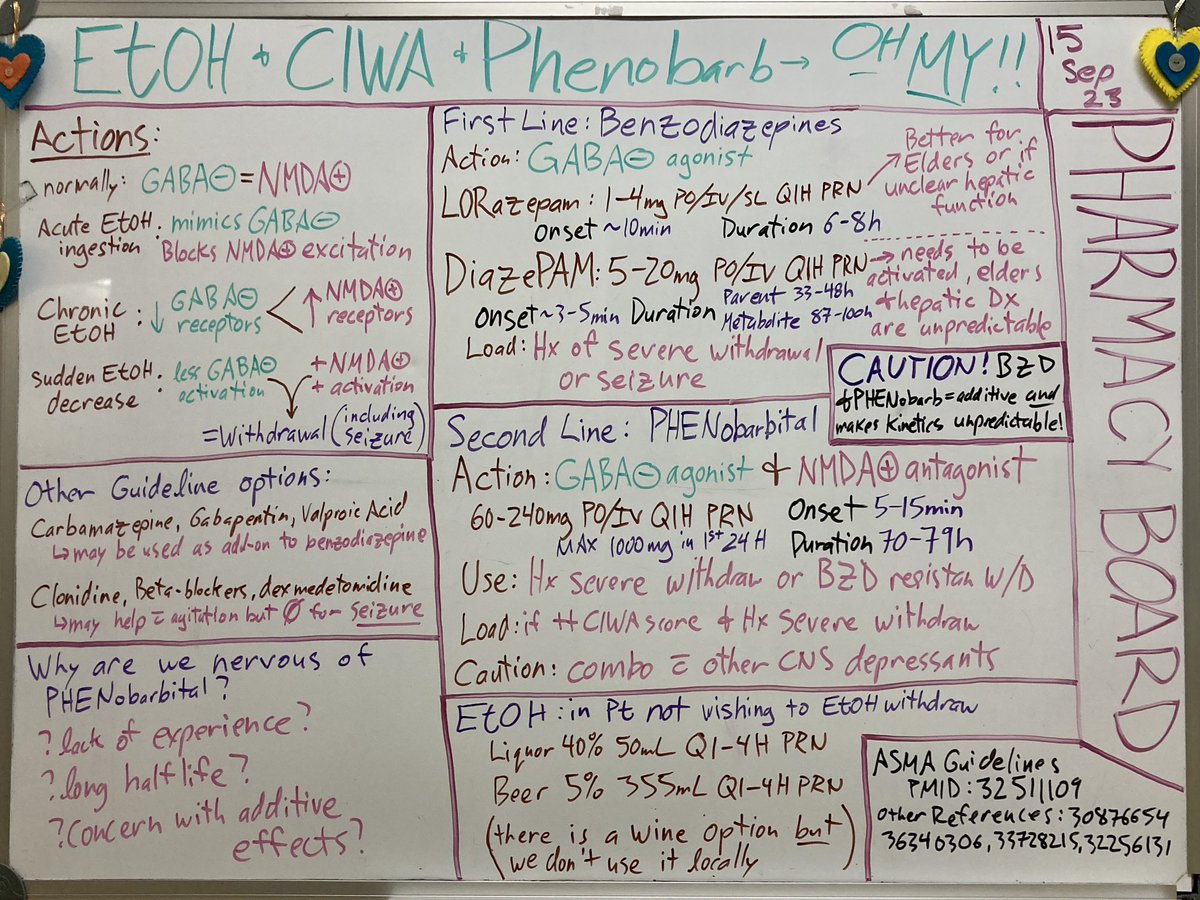 EtOH + CIWA + Phenobarb → OH MY!!
15
Sep
23
PHARMACY BOARD
Actions:
normally: GABA⊖ = NMDA⊕
Acute EtOH : mimics GABA⊖
ingestion Blocks NMDA⊕ excitation
Chronic EtOH : ↓ GABA⊖ receptors < ↑ NMDA⊕ receptors
Sudden EtOH : less GABA⊖ + NMDA⊕
decrease activation + activation
= Withdrawal (including seizure)
Other Guideline options:
Carbamazepine, Gabapentin, Valproic Acid
↳ may be used as add-on to benzodiazepine
Clonidine, Beta-blockers, dexmedetomidine
↳ may help c̄ agitation but Ø for seizure
Why are we nervous of
PHENobarbital?
? lack of experience?
? long half life?
? Concern with additive
effects?
First Line: Benzodiazepines
Action: GABA⊖ agonist
LORazepam: 1-4mg PO/IV/SL Q1H PRN
Onset ~10min Duration 6-8h
Better for
Elders or if
unclear hepatic
function
DiazePAM: 5-20mg PO/IV Q1H PRN
Onset ~3-5min Duration Parent 33-48h
Metabolite 87-100h
→ needs to be
activated, elders
+ hepatic Dx
are unpredictable
Load: Hx of severe withdrawal
or seizure
CAUTION! BZD
+ PHENobarb = additive and
makes kinetics unpredictable!
Second Line: PHENobarbital
Action: GABA⊖ agonist + NMDA⊕ antagonist
60-240mg PO/IV Q1H PRN Onset 5-15min
MAX 1000mg in 1st 24H Duration 70-79h
Use: Hx severe withdraw or BZD resistan W/D
Load: if ++ CIWA score + Hx severe withdraw
Caution: combo c̄ other CNS depressants
EtOH: in Pt not wishing to EtOH withdraw
Liquor 40% 50mL Q1-4H PRN
Beer 5% 355mL Q1-4H PRN
(there is a wine option but
we don't use it locally)
ASMA Guidelines
PMID: 32511109
Other References: 30876654
36340306, 33728215, 32256131